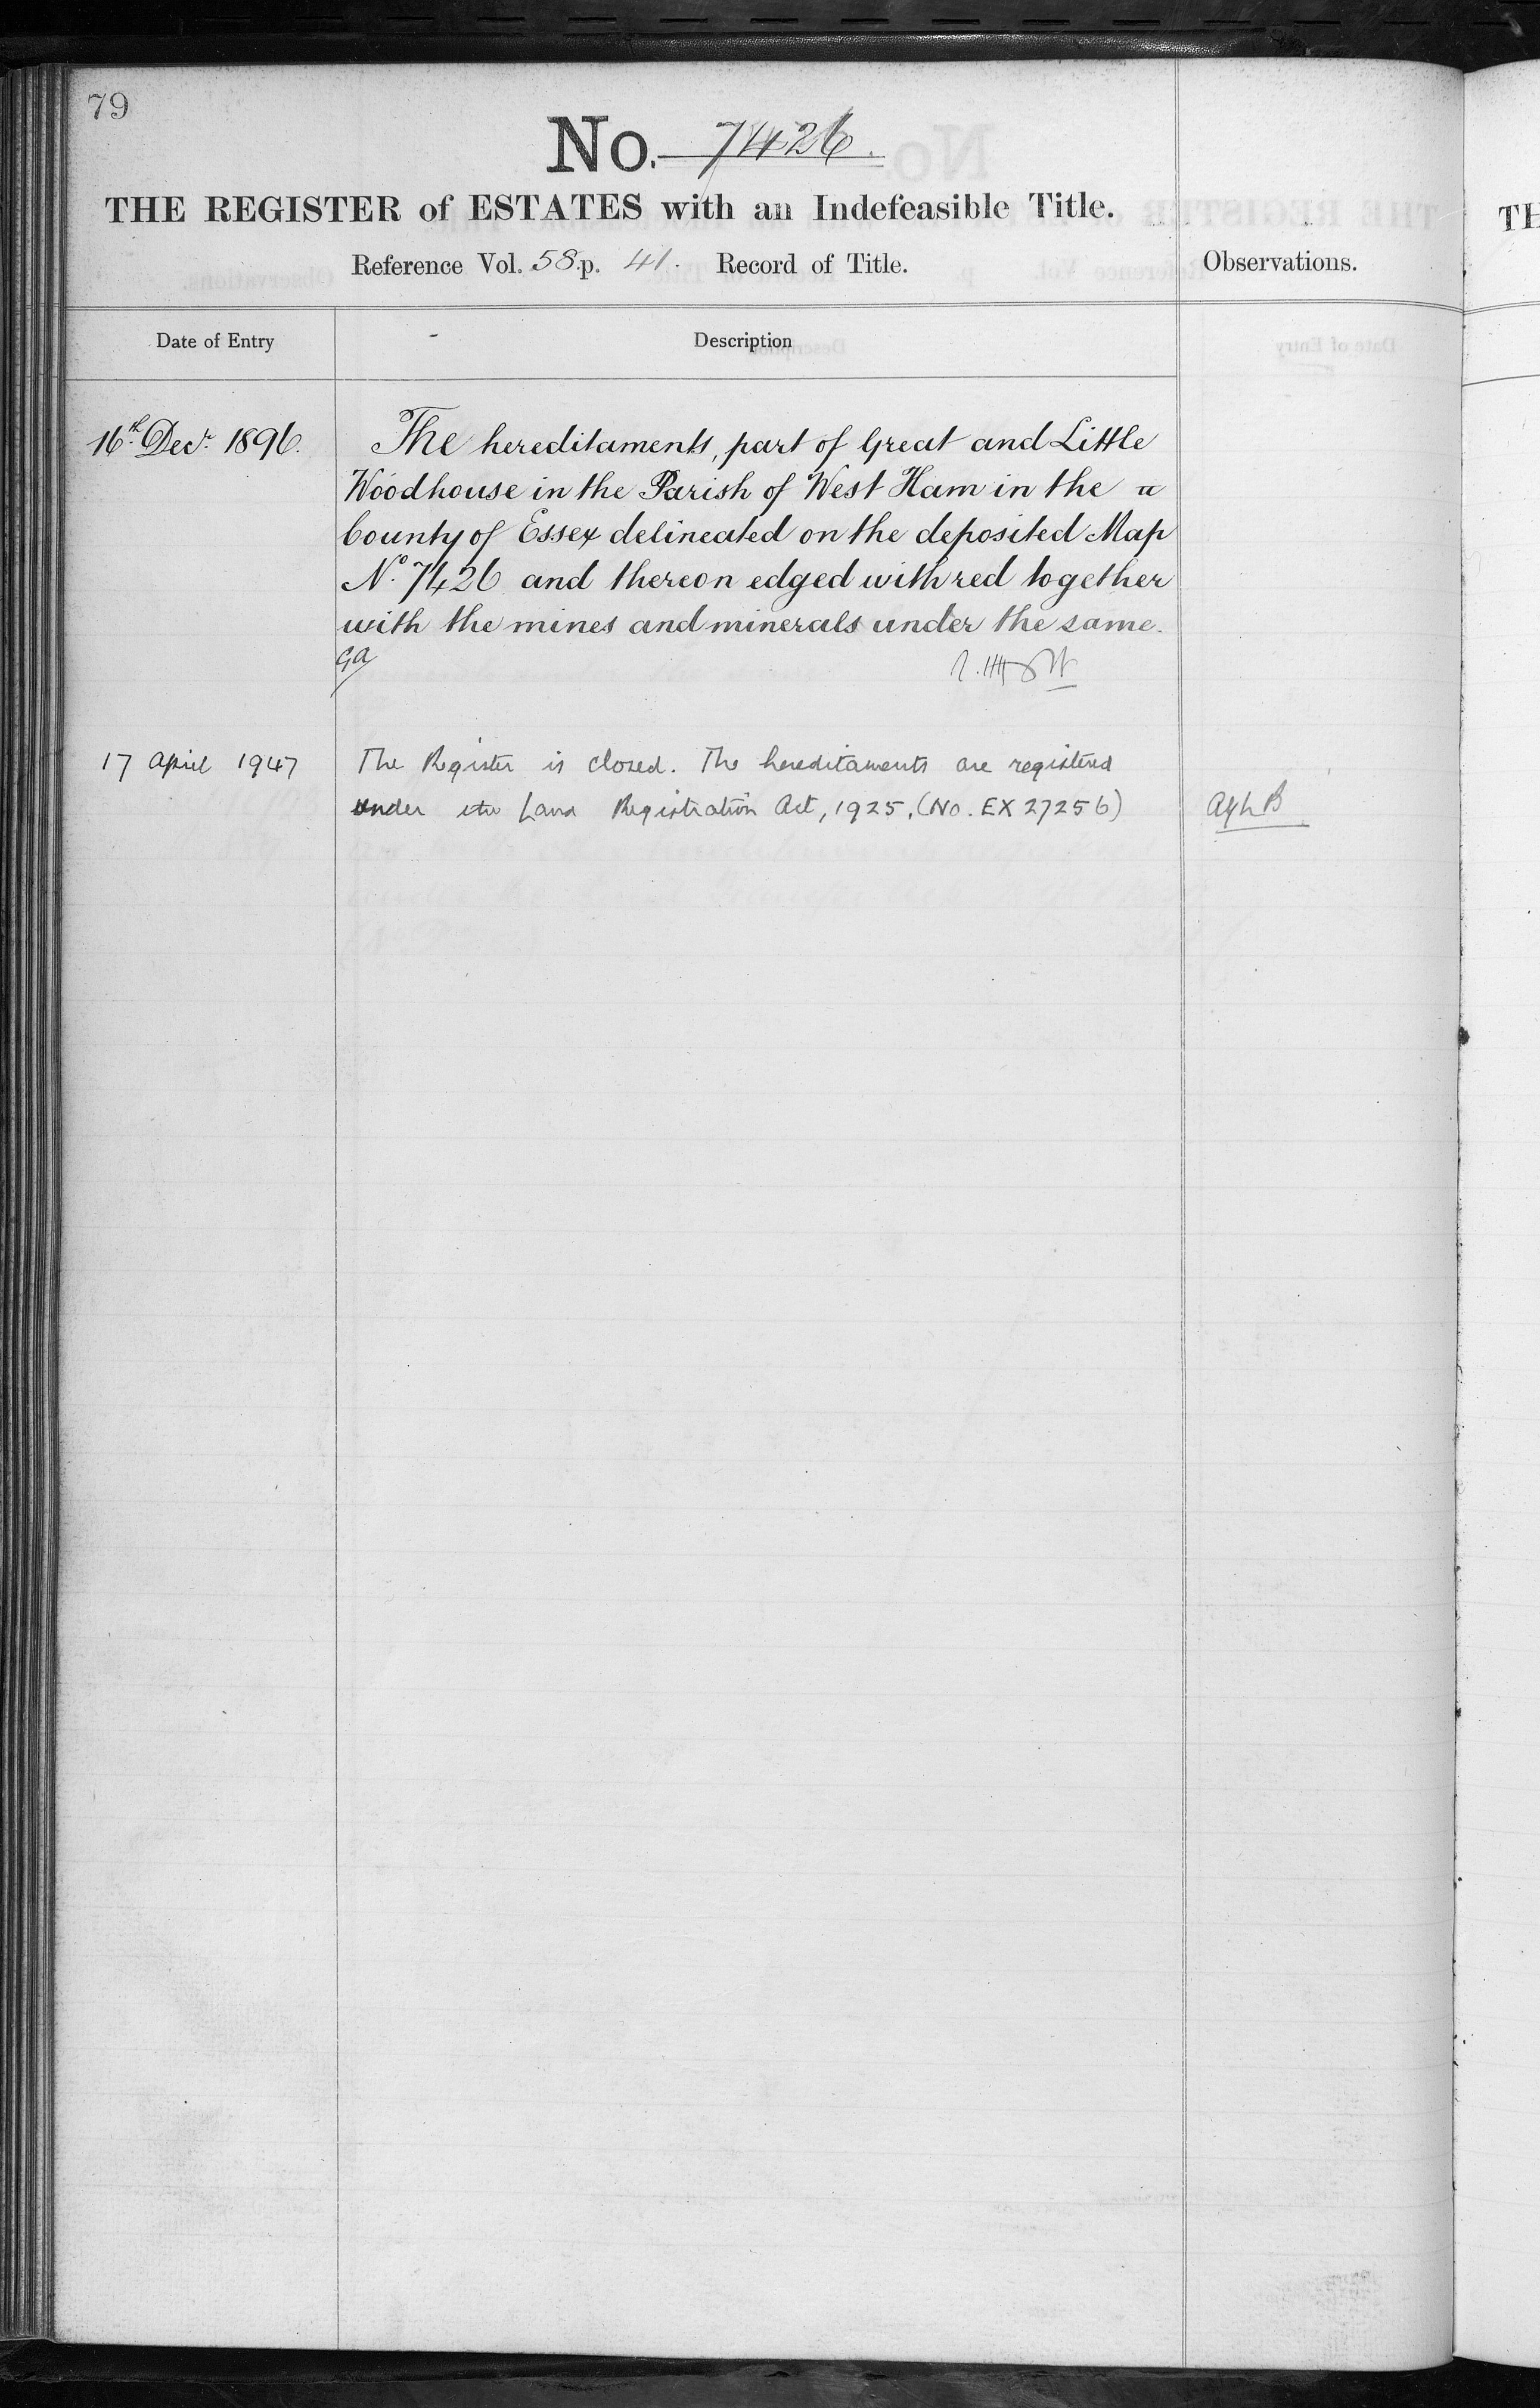 79
No. 7426.
THE REGISTER of ESTATES with an Indefeasible Title.
Reference Vol. 58. p. 41. Record of Title.
Observations.
Date of Entry
Description
16th Decr. 1896.
The hereditaments, part of Great and Little
Woodhouse in the Parish of West Ham in the
County of Essex delineated on the deposited Map
No. 7426 and thereon edged with red together
with the mines and minerals under the same.
GA
17 April 1947
The Register is closed. The hereditaments are registered
under the Land Registration Act, 1925. (No. EX 27256)
TH